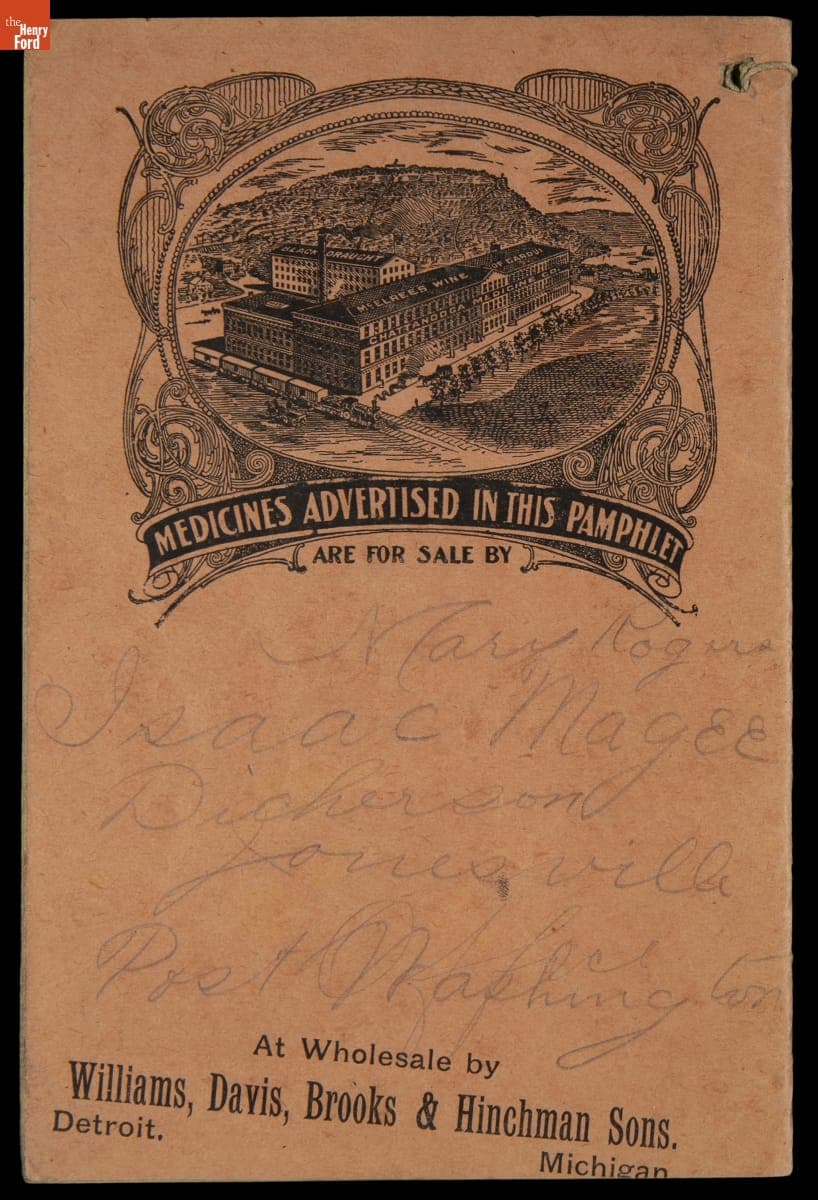 the
Henry
Ford
BLACK DRAUGHT
McELREES WINE OF CARDUI
CHATTANOOGA MEDICINE CO.
MEDICINES ADVERTISED IN THIS PAMPHLET
ARE FOR SALE BY
Mary Rogers
Isaac Magee
Dickerson
Jonesville
Post Office
Washington
At Wholesale by
Williams, Davis, Brooks & Hinchman Sons.
Detroit.
Michigan